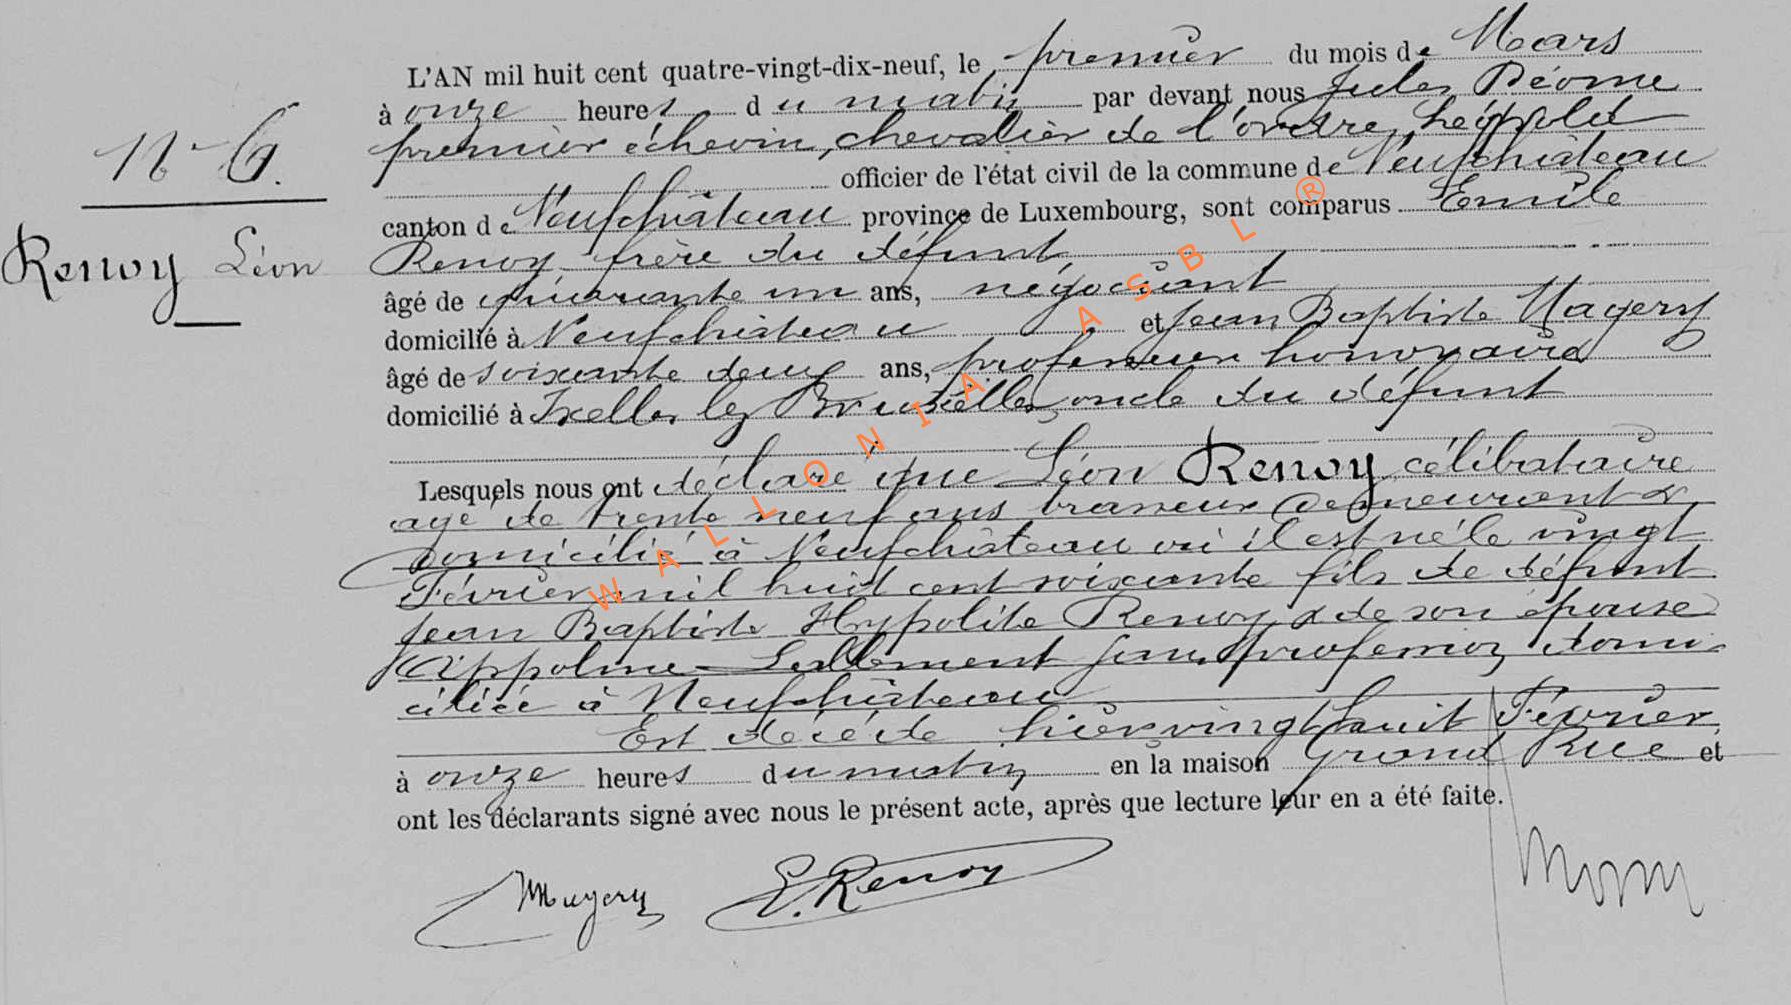 L'AN mil huit cent quatre-vingt-dix-neuf, le premier du mois de Mars
à onze heures du matin par devant nous Jules
premier échevin, chevalier de l'ordre Léopold
N° 6.
officier de l'état civil de la commune de Neufchâteau
canton de Neufchâteau province de Luxembourg, sont comparus Emile
Renoy Léon
Renoy frère du défunt
âgé de quarante un ans, négociant
domicilié à Neufchâteau et Jean Baptiste Magery
âgé de soixante deux ans, professeur honoraire
domicilié à Ixelles lez Bruxelles, oncle du défunt
Lesquels nous ont déclaré que Léon Renoy célibataire
agé de trente neuf ans brasseur demeurant &
domicilié à Neufchâteau où il est né le vingt
Février mil huit cent soixante fils de défunt
Jean Baptiste Hypolite Renoy & de son épouse
sans profession domi-
ciliée à Neufchâteau
Est décédé hier vingt huit Février
à onze heures du matin en la maison Grand Rue et
ont les déclarants signé avec nous le présent acte, après que lecture leur en a été faite.
Magery E. Renoy
WALLONIA ASBL ®